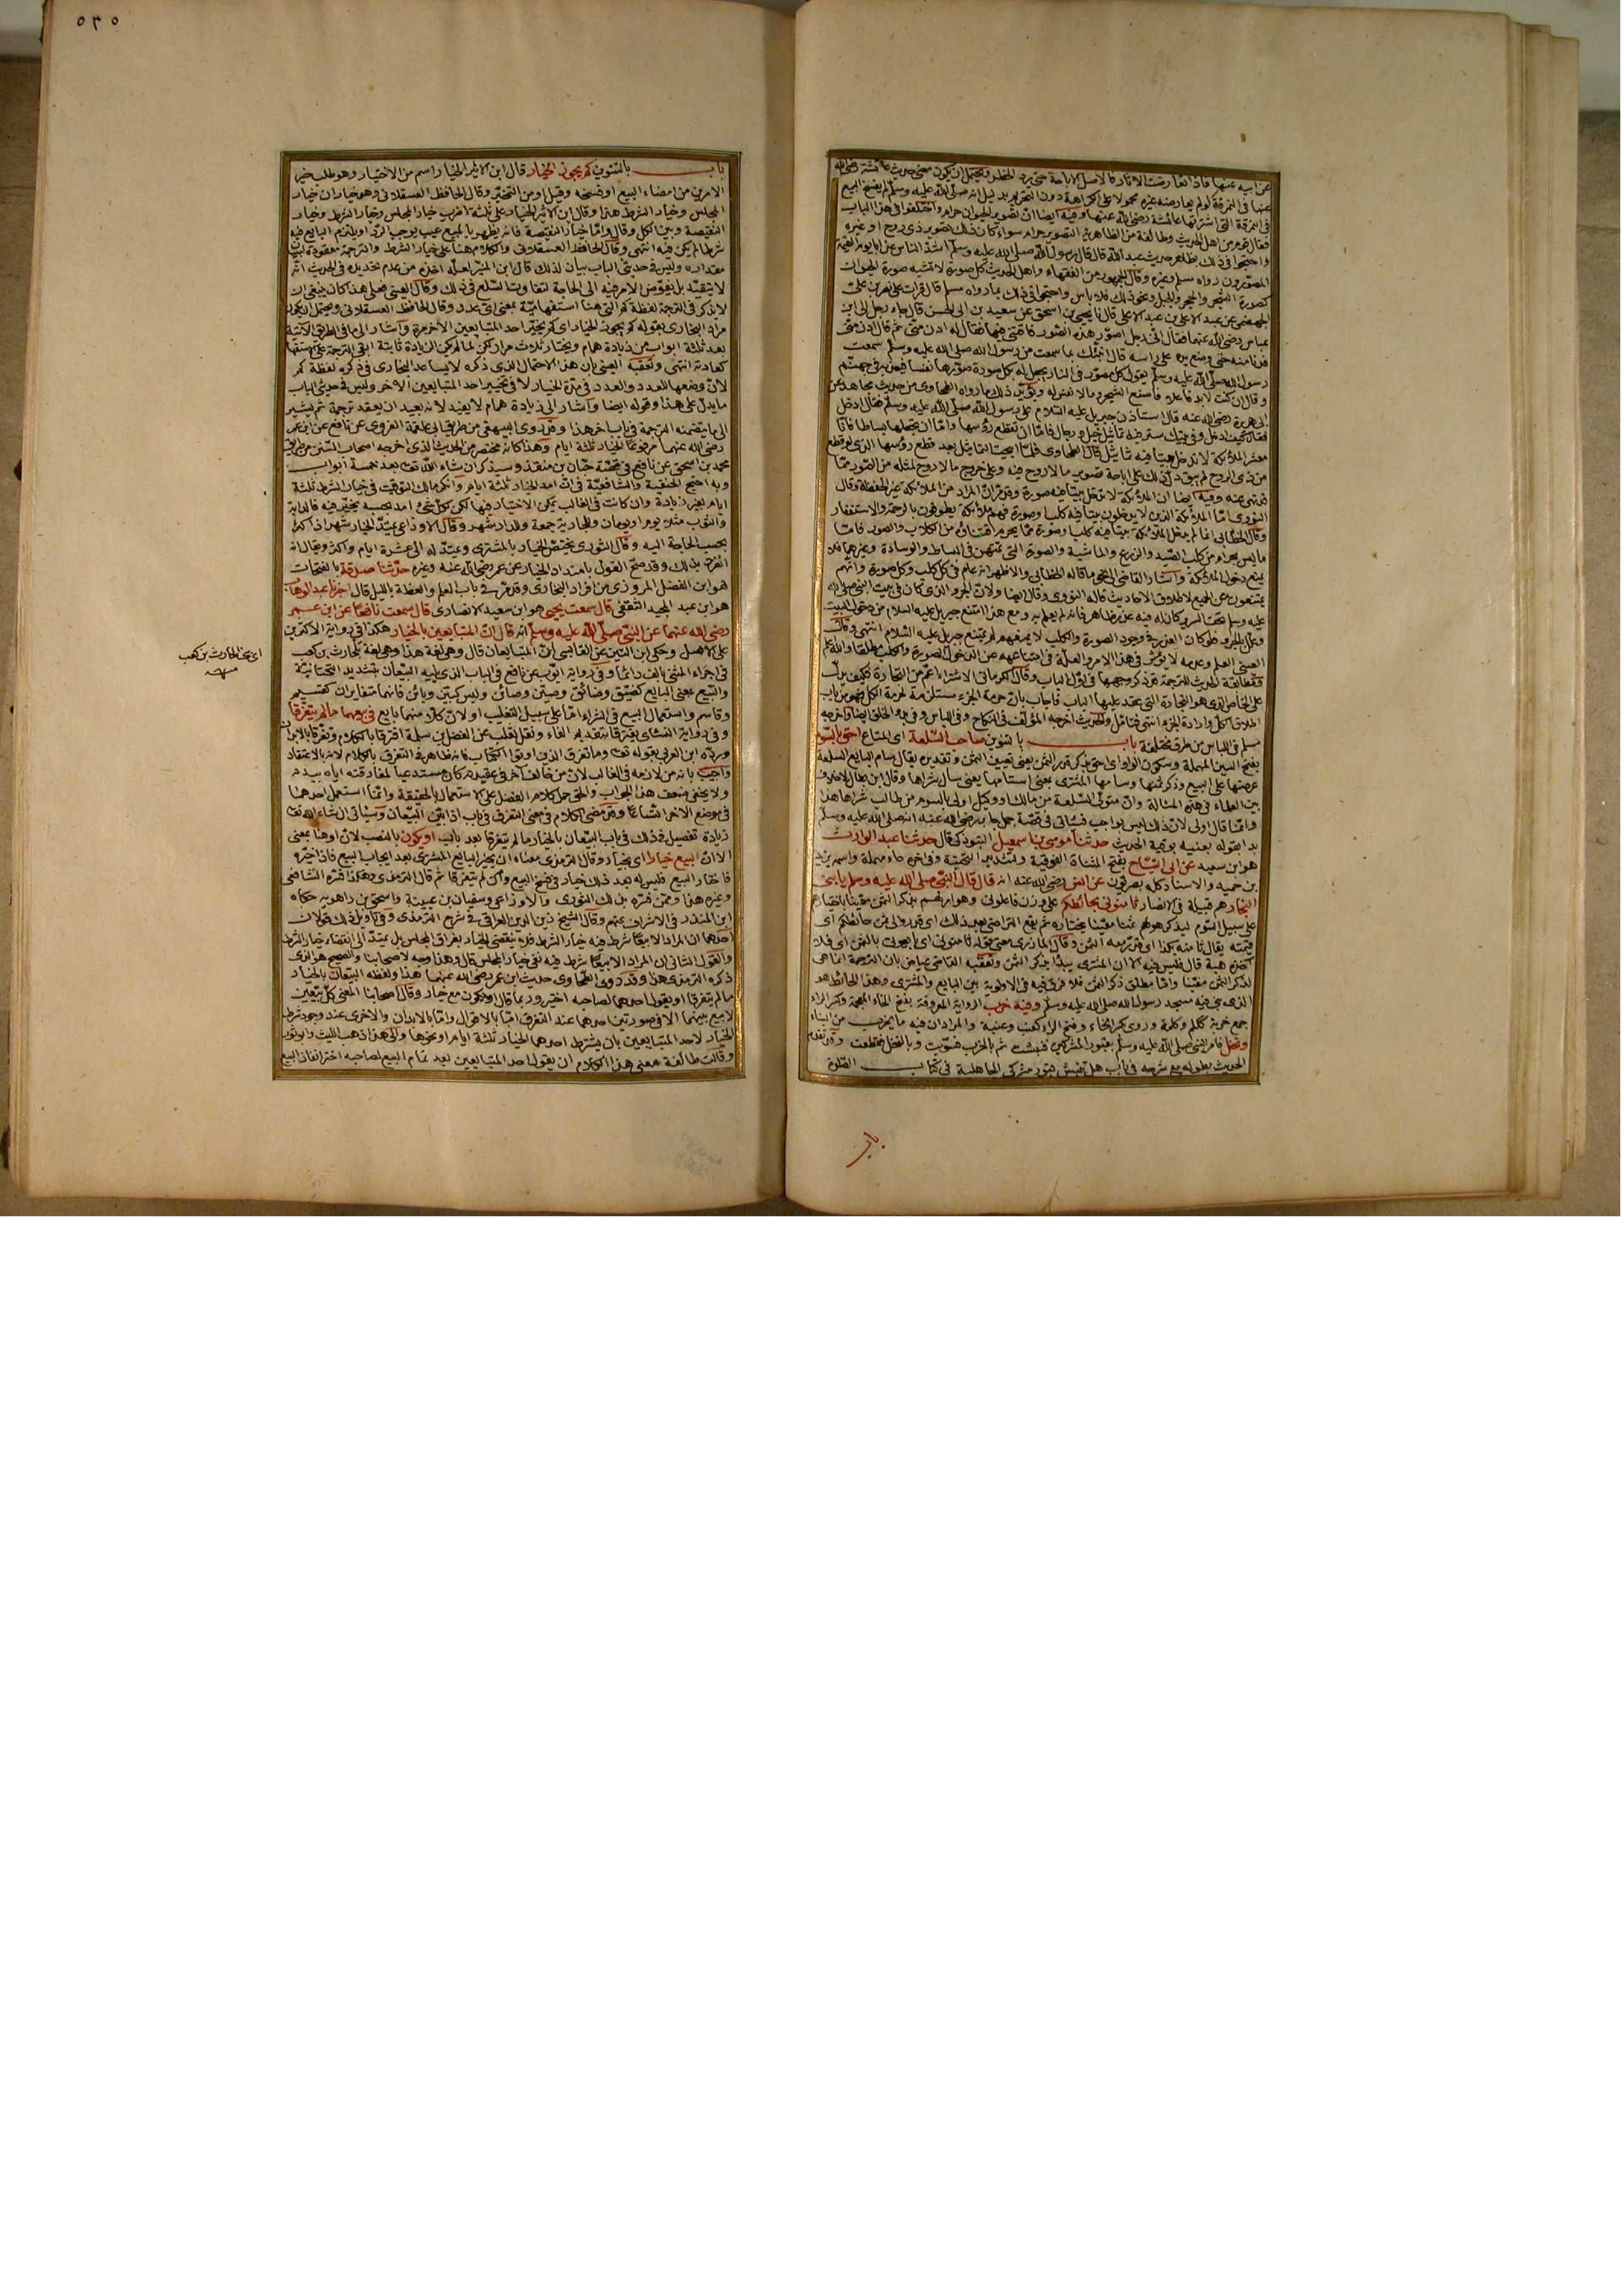 عن ابيه عنها فاذا تعارضت الاثار فالاصل الاباحة حتى يرد الحظر ويحتمل ان يكون معنى حديث عائشة رضي الله
عنها في النمرقة لو لم يعارضه غيره محمولا على الكراهة دون التحريم بدليل انه صلى الله عليه وسلم لم يفسخ البيع
في النمرقة التي اشترتها عائشة رضي الله عنها وفيه ايضا ان تصوير الحيوان حرام واختلفوا في هذا الباب
فقال قوم من اهل الحديث وطائفة من الظاهرية التصوير حرام سواء كان ذلك تصوير ذي روح او غيره
واحتجوا في ذلك بظاهر حديث عبد الله قال قال رسول الله صلى الله عليه وسلم اشد الناس عذابا يوم القيمة
المصورون رواه مسلم وغيره وقال الجمهور من الفقهاء واهل الحديث كل صورة لا تشبه صورة الحيوان
كصورة الشجر والحجر والجبل ونحو ذلك فلا باس واحتجوا في ذلك بما رواه مسلم قال قرات على نصر بن علي
الجهضمي عن عبد الاعلى بن عبد الاعلى قال نا يحيى بن اسحق عن سعيد بن ابي الحسن قال جاء رجل الى ابن
عباس رضي الله عنهما فقال اني رجل اصور هذه الصور فافتني فيها فقال له ادن مني ثم قال ادن مني
فدنا منه حتى وضع يده على راسه قال انبئك بما سمعت من رسول الله صلى الله عليه وسلم سمعت
رسول الله صلى الله عليه وسلم يقول كل مصور في النار يجعل له بكل صورة صورها نفسا فيعذبه في جهنم
وقال ان كنت لا بد فاعلا فاصنع الشجر وما لا نفس له ويؤيد ذلك ما رواه الطحاوي من حديث مجاهد عن
ابي هريرة رضي الله عنه قال استاذن جبريل عليه السلام على رسول الله صلى الله عليه وسلم فقال ادخل
فقال كيف ادخل وفي بيتك ستر فيه تماثيل خيل ورجال فاما ان تقطع رؤسها واما ان تجعلها بساطا فانا
معشر الملائكة لا ندخل بيتا فيه تماثيل قال الطحاوي فلما ابيحت التماثيل بعد قطع رؤسها الذي لو قطع
من ذي الروح لم يبق دل ذلك على اباحة تصوير ما لا روح فيه وعلى خروج ما لا روح لمثله من الصور مما
قد نهي عنه وفيه ايضا ان الملائكة لا تدخل بيتا فيه صورة وقد مر ان المراد من الملائكة غير الحفظة وقال
النووي اما الملائكة الذين لا يدخلون بيتا فيه كلب او صورة فهم ملائكة يطوفون بالرحمة والاستغفار
وقال الخطابي انما لم يدخل الملائكة بيتا فيه كلب او صورة مما يحرم اقتناؤه من الكلاب والصور فاما
ما ليس بحرام من كلب الصيد والزرع والماشية والصورة التي تمتهن في البساط والوسادة وغيرهما فلا
يمنع دخول الملائكة واشار القاضي الى نحو ما قاله الخطابي والاظهر انه عام في كل كلب وكل صورة وانهم
يمتنعون من الجميع لاطلاق الاحاديث قاله النووي وقال ايضا ولان الجرو الذي كان في بيت النبي صلى الله
عليه وسلم تحت السرير كان له فيه عذر ظاهر فانه لم يعلم به ومع هذا امتنع جبريل عليه السلام من دخول البيت
وعلل بالجرو فلو كان العذر في وجود الصورة والكلب لا يمنعهم لم يمتنع جبريل عليه السلام انتهى وقال
العيني العلم وعدمه لا يؤثر في هذا الامر والعلة في امتناعهم عن الدخول الصورة والكلب مطلقا والله اعلم
ومطابقة الحديث للترجمة قد ذكر وجهها في اول الباب وقال الكرماني الاشتراء اعم من التجارة فكيف يدل
على الخاص الذي هو التجارة التي عقد عليها الباب فاجاب بان حرمة الجزء مستلزمة لحرمة الكل فهو من باب
اطلاق الكل وارادة الجزء انتهى فتامل والحديث اخرجه المؤلف في النكاح وفي اللباس وفي بدء الخلق ايضا واخرجه
مسلم في اللباس من طرق مختلفة باب بالتنوين صاحب السلعة اى المتاع احق بالسوم
بفتح السين المهملة وسكون الواو اى احق بذكر قدر الثمن يعني تعيين الثمن وتقديره يقال سام البايع السلعة
عرضها على البيع وذكر ثمنها وسامها المشتري بمعنى استامها يعني سال شراها وقال ابن بطال لا خلاف
بين العلماء في هذه المسالة وان متولي السلعة من مالك او وكيل اولى بالسوم من طالب شراها هذا
وانما قال اولى لان ذلك ليس بواجب فسياتي في قصة جمل جابر رضي الله عنه انه صلى الله عليه وسلم
بدا بقوله بعنيه بوقية الحديث حدثنا موسى بن اسمعيل التبوذكي قال حدثنا عبد الوارث
هو ابن سعيد عن ابي التياح بفتح المثناة الفوقية وتشديد التحتية وفي اخره حاء مهملة واسمه يزيد
بن حميد والاسناد كله بصريون عن انس رضي الله عنه انه قال قال النبي صلى الله عليه وسلم يا بني
النجار هم قبيلة في الانصار ثامنوني بحائطكم على وزن فاعلوني وهو امر لهم بذكر الثمن معينا باختيارهم
على سبيل السوم ليذكر هو لهم ثمنا معينا يختاره ثم يقع التراضي بعد ذلك اى قدروا لي ثمن حائطكم اى
قيمته يقال ثامنه بكذا اى قدر معه الثمن وقال المازري معنى قوله ثامنوني اى بايعوني بالثمن اى فلا
آخذه هبة قال فليس فيه الا ان المشتري يبدأ بذكر الثمن وتعقبه القاضي عياض بان الترجمة انما هي
لذكر الثمن معينا واما مطلق ذكر الثمن فلا فرق فيه في الاولوية بين البايع والمشتري وهذا الحائط هو
الذي بني فيه مسجد رسول الله صلى الله عليه وسلم وفيه خرب الرواية المعروفة بفتح الخاء المعجمة وكسر الراء
جمع خربة ككلم وكلمة وروي بكسر الخاء وفتح الراء كعنب وعنبة والمراد ان فيه ما يخرب من البناء
ونخل فامر النبي صلى الله عليه وسلم بقبور المشركين فنبشت ثم بالخرب فسويت وبالنخل فقطعت وقد تقدم
الحديث بطوله مع شرحه في باب هل تنبش قبور مشركي الجاهلية في كتاب الصلوة
باب
٥٣٥
باب بالتنوين كم يجوز الخيار قال ابن الاثير الخيار اسم من الاختيار وهو طلب خير
الامرين من امضاء البيع او فسخه وقيل او من التخير وقال الحافظ العسقلاني وهو خياران خيار
المجلس وخيار الشرط هذا وقال ابن الاثير الخيار على ثلثة اضرب خيار المجلس وخيار الشرط وخيار
النقيصة وبين الكل وقال واما خيار النقيصة فانه يظهر بالمبيع عيب يوجب الرد او يلتزم البايع فيه
شرطا لم يكن فيه انتهى وقال الحافظ العسقلاني والكلام هنا على خيار الشرط والترجمة معقودة لبيان
مقداره وليس في حديثي الباب بيان لذلك قال ابن المنير لعله اخذه من عدم تحديده في الحديث انه
لا يتقيد بل يفوض الامر فيه الى الحاجة لتفاوت السلع في ذلك وقال العيني فعلى هذا كان ينبغي ان
لا يذكر في الترجمة لفظة كم التي هنا استفهامية بمعنى اى عدد وقال الحافظ العسقلاني ويحتمل ان يكون
مراد البخاري بقوله كم يجوز الخيار اى كم يخير احد المتبايعين الاخر مرة واشار الى ما في الطريق الاتية
بعد ثلثة ابواب من زيادة همام ويختار ثلاث مرار لكن لما لم يكن الزيادة ثابتة ابقى الترجمة على استفهامها
كعادته انتهى وتعقبه العيني بان هذا الاحتمال الذي ذكره لا يساعد البخاري في ذكره لفظة كم
لان وضعها للعدد والعدد في مدة الخيار لا في تخيير احد المتبايعين الاخر وليس في حديثي الباب
ما يدل على هذا وقوله ايضا واشار الى زيادة همام لا يفيد لانه بعيد ان يعقد ترجمة ثم يشير
الى ما يتضمنه الترجمة في باب اخر هذا وقد روى البيهقي من طريق ابي علقمة الفروي عن نافع عن ابن عمر
رضي الله عنهما مرفوعا الخيار ثلثة ايام وهذا كانه مختصر من الحديث الذي اخرجه اصحاب السنن من طريق
محمد بن اسحق عن نافع في قصة حبان بن منقذ وسيذكر ان شاء الله تعالى بعد خمسة ابواب
وبه احتج الحنفية والشافعية في ان امد الخيار ثلثة ايام وانكر مالك التوقيت في خيار الشرط ثلثة
ايام بغير زيادة وان كانت في الغالب يمكن الاختيار فيها لكن لكل شيء امد بحسبه يتخير فيه فللدابة
والثوب مثلا يوم او يومان وللجارية جمعة وللدار شهر وقال الاوزاعي يمتد الخيار شهرا واكثر
بحسب الحاجة اليه وقال الثوري يختص الخيار بالمشتري ويمتد له الى عشرة ايام واكثر ويقال انه
انفرد بذلك وقد صح القول بامتداد الخيار عن عمر رضي الله عنه وغيره حدثنا صدقة بالفتحات
هو ابن الفضل المروزي من افراد البخاري وقد مر في باب العلم والعظة بالليل قال اخبرنا عبد الوهاب
هو ابن عبد المجيد الثقفي قال سمعت يحيى هو ابن سعيد الانصاري قال سمعت نافعا عن ابن عمر
رضي الله عنهما عن النبي صلى الله عليه وسلم انه قال ان المتبايعين بالخيار هكذا في رواية الاكثرين
على الاصل وحكى ابن التين عن القابسي ان المتبايعان قال وهي لغة هذا وهي لغة بلحارث بن كعب
اى بني الحارث بن كعب
منه
في اجراء المثنى بالف دائما وفي رواية ايوب عن نافع في الباب الذي يليه البيعان بتشديد التحتانية
والبيع بمعنى البايع كضيق وضائق وصين وصائن وليس كبين وبائن فانهما متغايران كقسيم
وقاسم واستعمال البيع في الشراء اما على سبيل التغليب او لان كلا منهما بايع في بيعهما ما لم يتفرقا
وفي رواية النسائي يفترقا بتقديم الفاء ونقل ثعلب عن الفضل بن سلمة افترقا بالكلام وتفرقا بالابدان
ورده ابن العربي بقوله تعالى وما تفرق الذين اوتوا الكتاب فانه ظاهر في التفرق بالكلام لانه بالاعتقاد
واجيب بانه من لازمه في الغالب لان من خالف آخر في عقيدته كان مستدعيا لمفارقته اياه ببدنه
ولا يخفى ضعف هذا الجواب والحق حمل كلام الفضل على الاستعمال بالحقيقة وانما استعمل احدهما
في موضع الاخر اتساعا وقد مضى الكلام في معنى التفرق في باب اذا بين البيعان وسياتي ان شاء الله تعالى
زيادة تفصيل في ذلك في باب البيعان بالخيار ما لم يتفرقا بعد باب او يكون بالنصب لان او هنا بمعنى
الا ان البيع خيارا اى بخيار وقال الترمذي معناه ان يخير البايع المشتري بعد ايجاب البيع فاذا خيره
فاختار البيع فليس له بعد ذلك خيار في فسخ البيع وان لم يتفرقا ثم قال الترمذي وهكذا فسره الشافعي
وغيره هذا وممن فسره بذلك الثوري والاوزاعي وسفيان بن عيينة واسحق بن راهويه حكاه
ابن المنذر في الاشراف عنهم وقال الشيخ زين الدين العراقي في شرح الترمذي وفي تاويل ذلك قولان
احدهما ان المراد الا بيعا شرط فيه خيار الشرط فلا ينقضي الخيار بفراق المجلس بل يمتد الى انقضاء خيار الشرط
والقول الثاني ان المراد الا بيعا شرط فيه نفي خيار المجلس قال وهذا وجه لاصحابنا والصحيح هو الذي
ذكره الترمذي هذا وقد روى الطحاوي حديث ابن عمر رضي الله عنهما هذا ولفظه البيعان بالخيار
ما لم يتفرقا او يقول احدهما لصاحبه اختر وربما قال او يكون بيع خيار وقال اصحابنا المعنى كل بيعين
لا بيع بينهما الا في صورتين احدهما عند التفرق اما بالاقوال واما بالابدان والاخرى عند وجود شرط
الخيار لاحد المتبايعين بان يشترط احدهما الخيار ثلثة ايام او نحوها والى هذا ذهب الليث وابو ثور
وقالت طائفة معنى هذا الكلام ان يقول احد المتبايعين بعد تمام البيع لصاحبه اختر انفاذ البيع